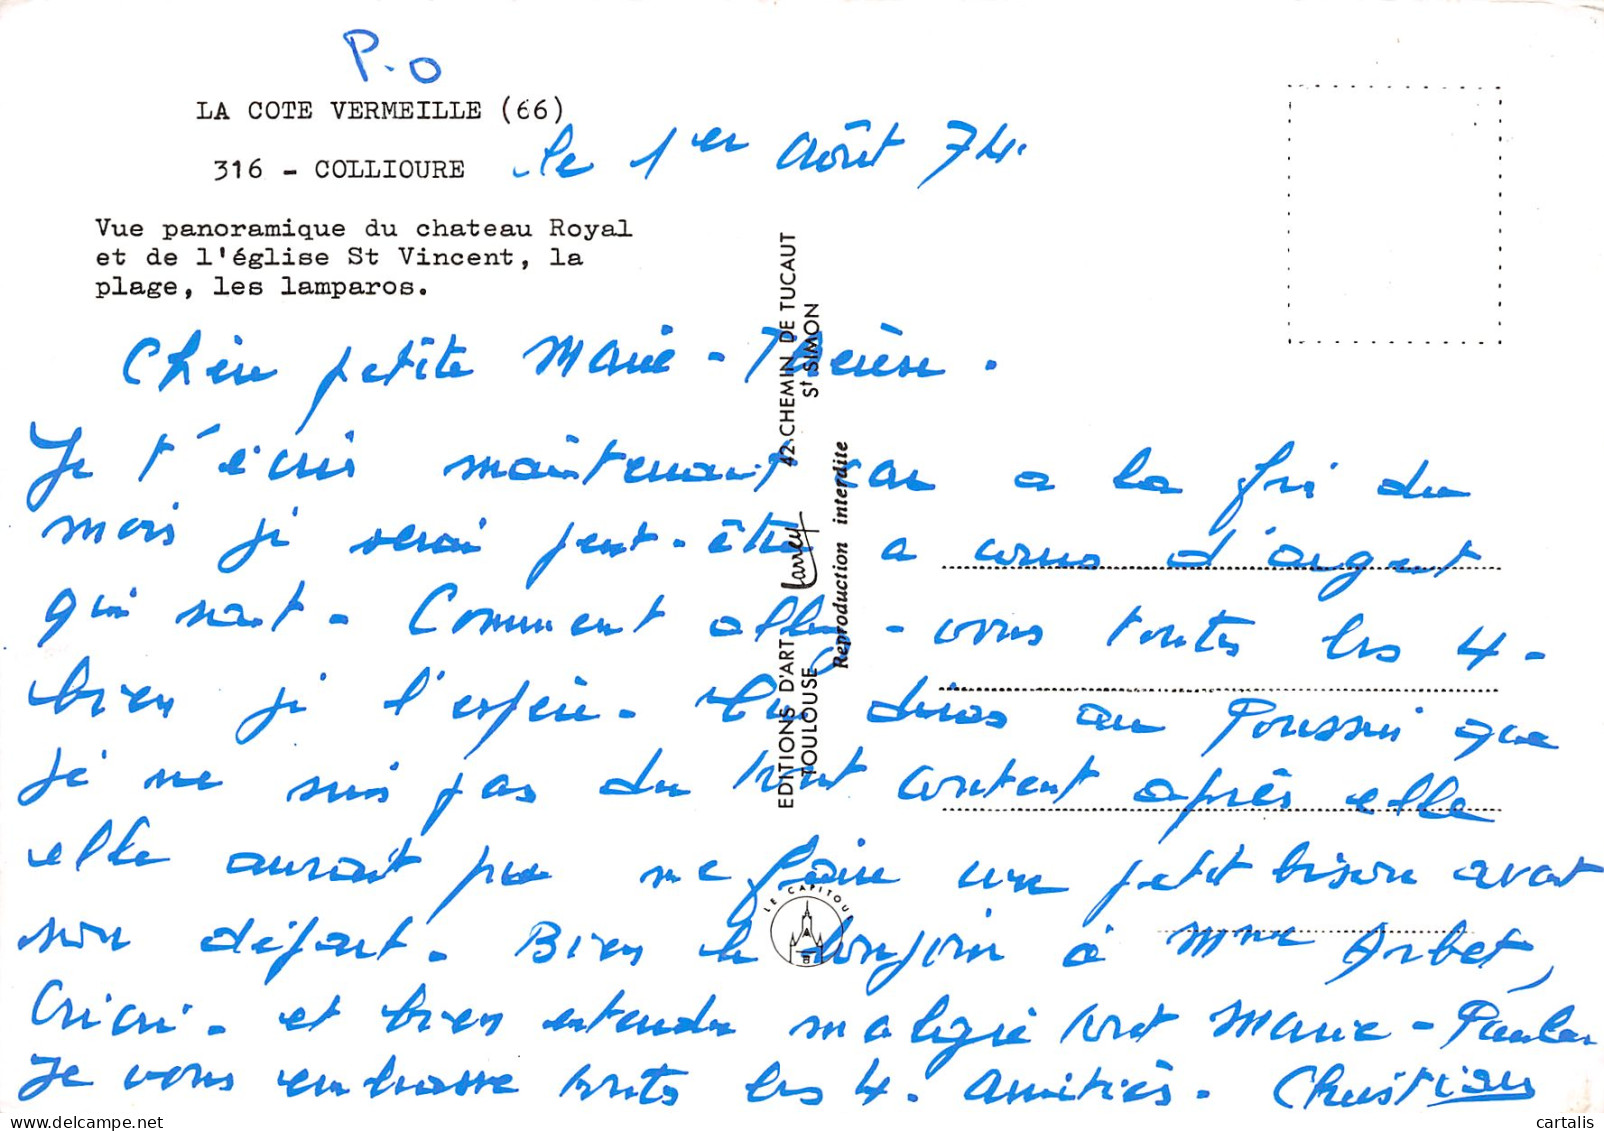 P.O
LA COTE VERMEILLE (66)
316 - COLLIOURE
le 1er Août 74.
Vue panoramique du chateau Royal
et de l'église St Vincent, la
plage, les lamparos.
Chère petite Marie-Thérèse.
Je t'écris maintenant car a la fin du
mois je serai peut-être a cours d'argent
qui sait. Comment allez-vous toutes les 4.
bien je l'espère. Tu diras au Poussin que
je ne suis pas du tout content après elle
elle aurait pu me faire un petit bison avant
son départ. Bien le bonjour à Mme Arbet,
Cricri. et bien entendu malgré tout Marie-Paule
Je vous embrasse toutes les 4. Amitiés. Christian
EDITIONS D'ART Larrey 42, CHEMIN DE TUCAUT
TOULOUSE St SIMON
Reproduction interdite
LE CAPITOUL
cartalis